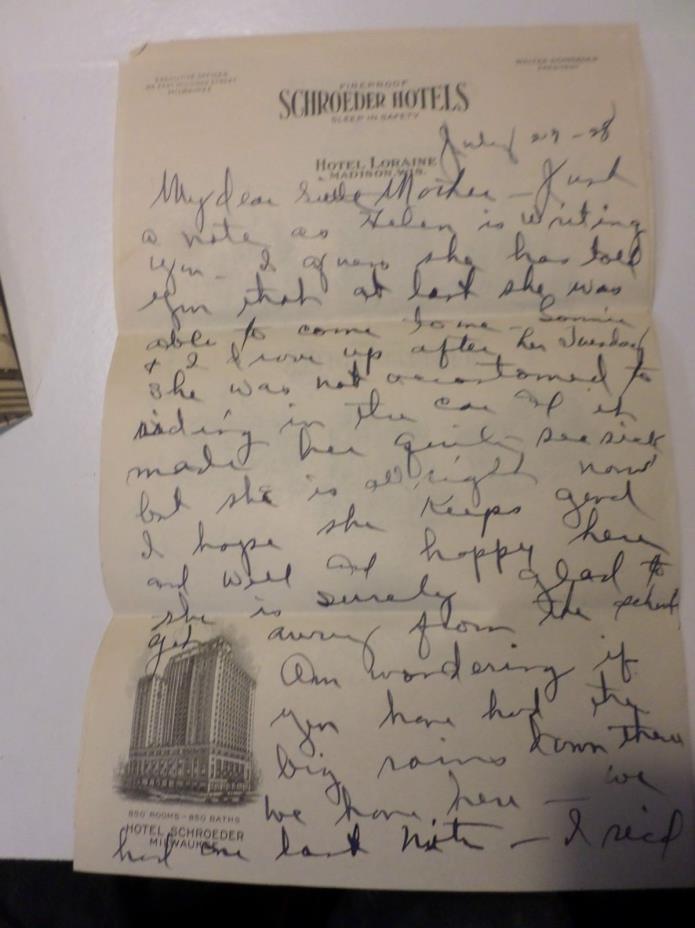 EXECUTIVE OFFICES
MILWAUKEE
WALTER SCHROEDER
PRESIDENT
FIREPROOF
SCHROEDER HOTELS
SLEEP IN SAFETY
July 29-28
HOTEL LORAINE
MADISON, WIS.
My dear Mother - Just
a note as Helen is writing
you - I guess she has told
you that at last she was
able to come to me -
& I drove up after her Tuesday
She was not accustomed to
riding in the car & it
made her quite sea sick
but she is all right now
I hope she keeps good
and well and happy here
she is surely glad to
get away from the school
Am wondering if
you have had the
big rains down there
we have here - we
had one last nite - I
850 ROOMS - 850 BATHS
HOTEL SCHROEDER
MILWAUKEE